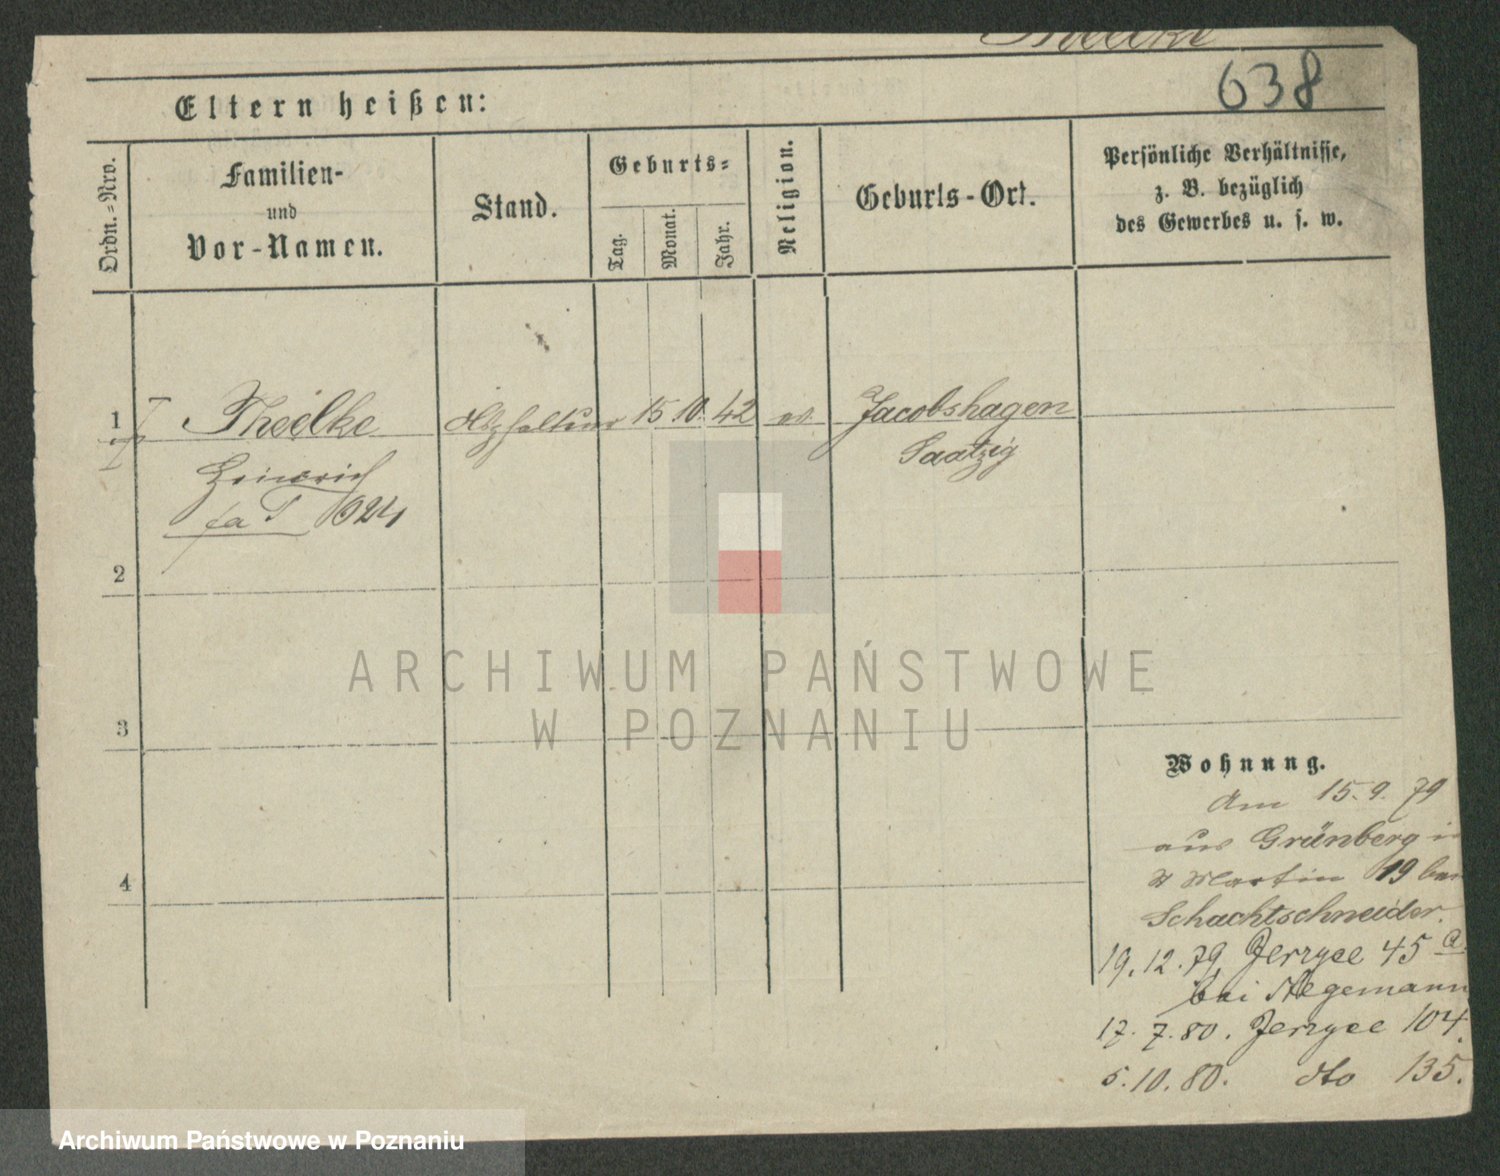 Theelke
638
Eltern heißen:
Ordn.=Nro.
Familien-
und
Vor-Namen.
Stand.
Geburts=
Tag.
Monat.
Jahr.
Religion.
Geburts-Ort.
Persönliche Verhältnisse,
z. B. bezüglich
des Gewerbes u. s. w.
1
Theelke
15 10. 42
ev.
Jacobshagen
Saatzig
Heinrich
fa T 624
2
ARCHIWUM PAŃSTWOWE
W POZNANIU
3
4
Wohnung.
Am 15. 9. 79
aus Grünberg in
St Martin 19 bei
Schachtschneider.
19. 12. 79 Jerzyce 45 a.
bei Hegemann
17. 7. 80. Jerzyce 104.
5. 10. 80. dto 135.
Archiwum Państwowe w Poznaniu